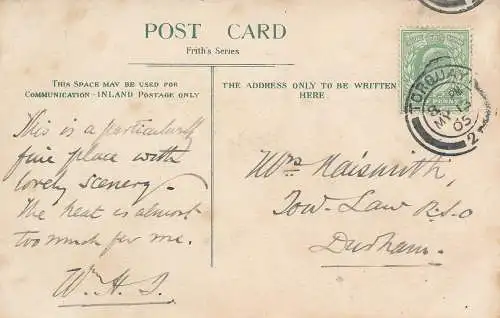 POST CARD
Frith's Series
THIS SPACE MAY BE USED FOR
COMMUNICATION - INLAND POSTAGE ONLY
THE ADDRESS ONLY TO BE WRITTEN
HERE
This is a particularly
fine place with
lovely scenery -
The heat is almost
too much for me.
W.H.J.
Mrs Naismith,
Tow-Law R.S.O
Durham.
TORQUAY
8 PM
MY 13
05
2
PENNY